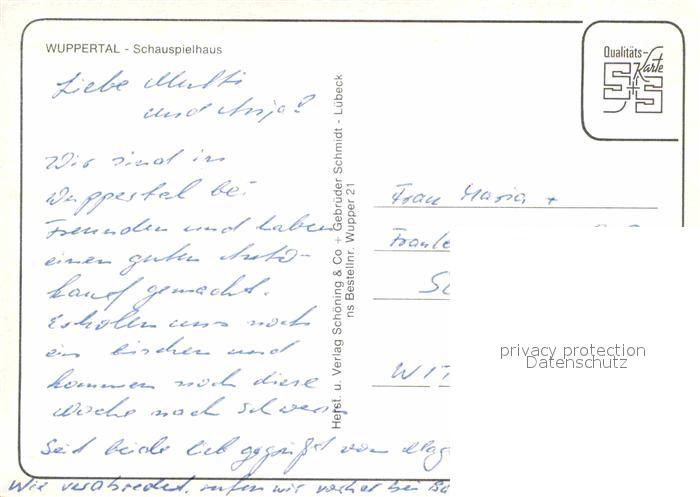 WUPPERTAL - Schauspielhaus
Qualitäts-
Karte
S+S
Liebe Mutti
und Anja!
Wir sind in
Wuppertal bei
Freunden und haben
einen guten Auto-
kauf gemacht.
Erholen uns noch
ein bischen und
kommen noch diese
Woche nach Schwerin
Seit beide lieb gegrüßt von
Wie verabredet, rufen wir vorher bei
Herst. u. Verlag Schöning & Co + Gebrüder Schmidt - Lübeck
ns Bestellnr. Wupper 21
Frau Maria +
privacy protection
Datenschutz